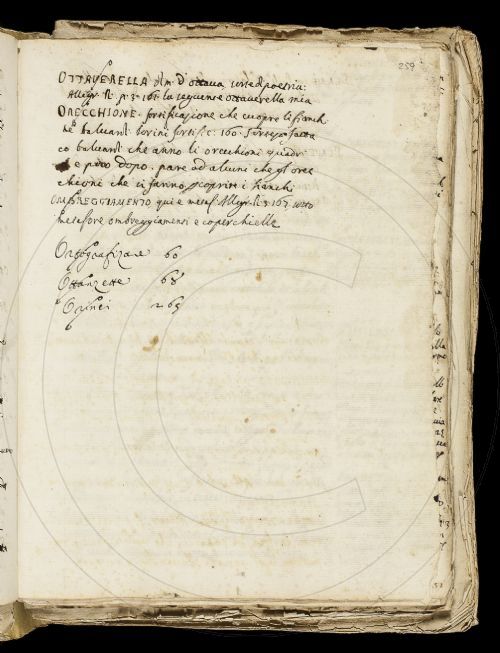 259
OTTAVERELLA dim. d'ottava, sorte di poesia.
Allegr. R. p. 3. 165. la seguente ottaverella mia
ORECCHIONE. fortificazione che cuopre li fianch
ne baluardi. Lorini fortif. c. 160. fortezza fatta
co baluardi che anno li orecchioni quadri
e poco dopo. pare ad alcuni che gl'orec
chioni che si fanno, scoprir i fianchi
OMBREGGIAMENTO, qui è metaf. Allegr. R. 3. 167. sotto
metafore ombreggiamenti e coperchielle
Ortografizare 60
Ottanzette 68
265